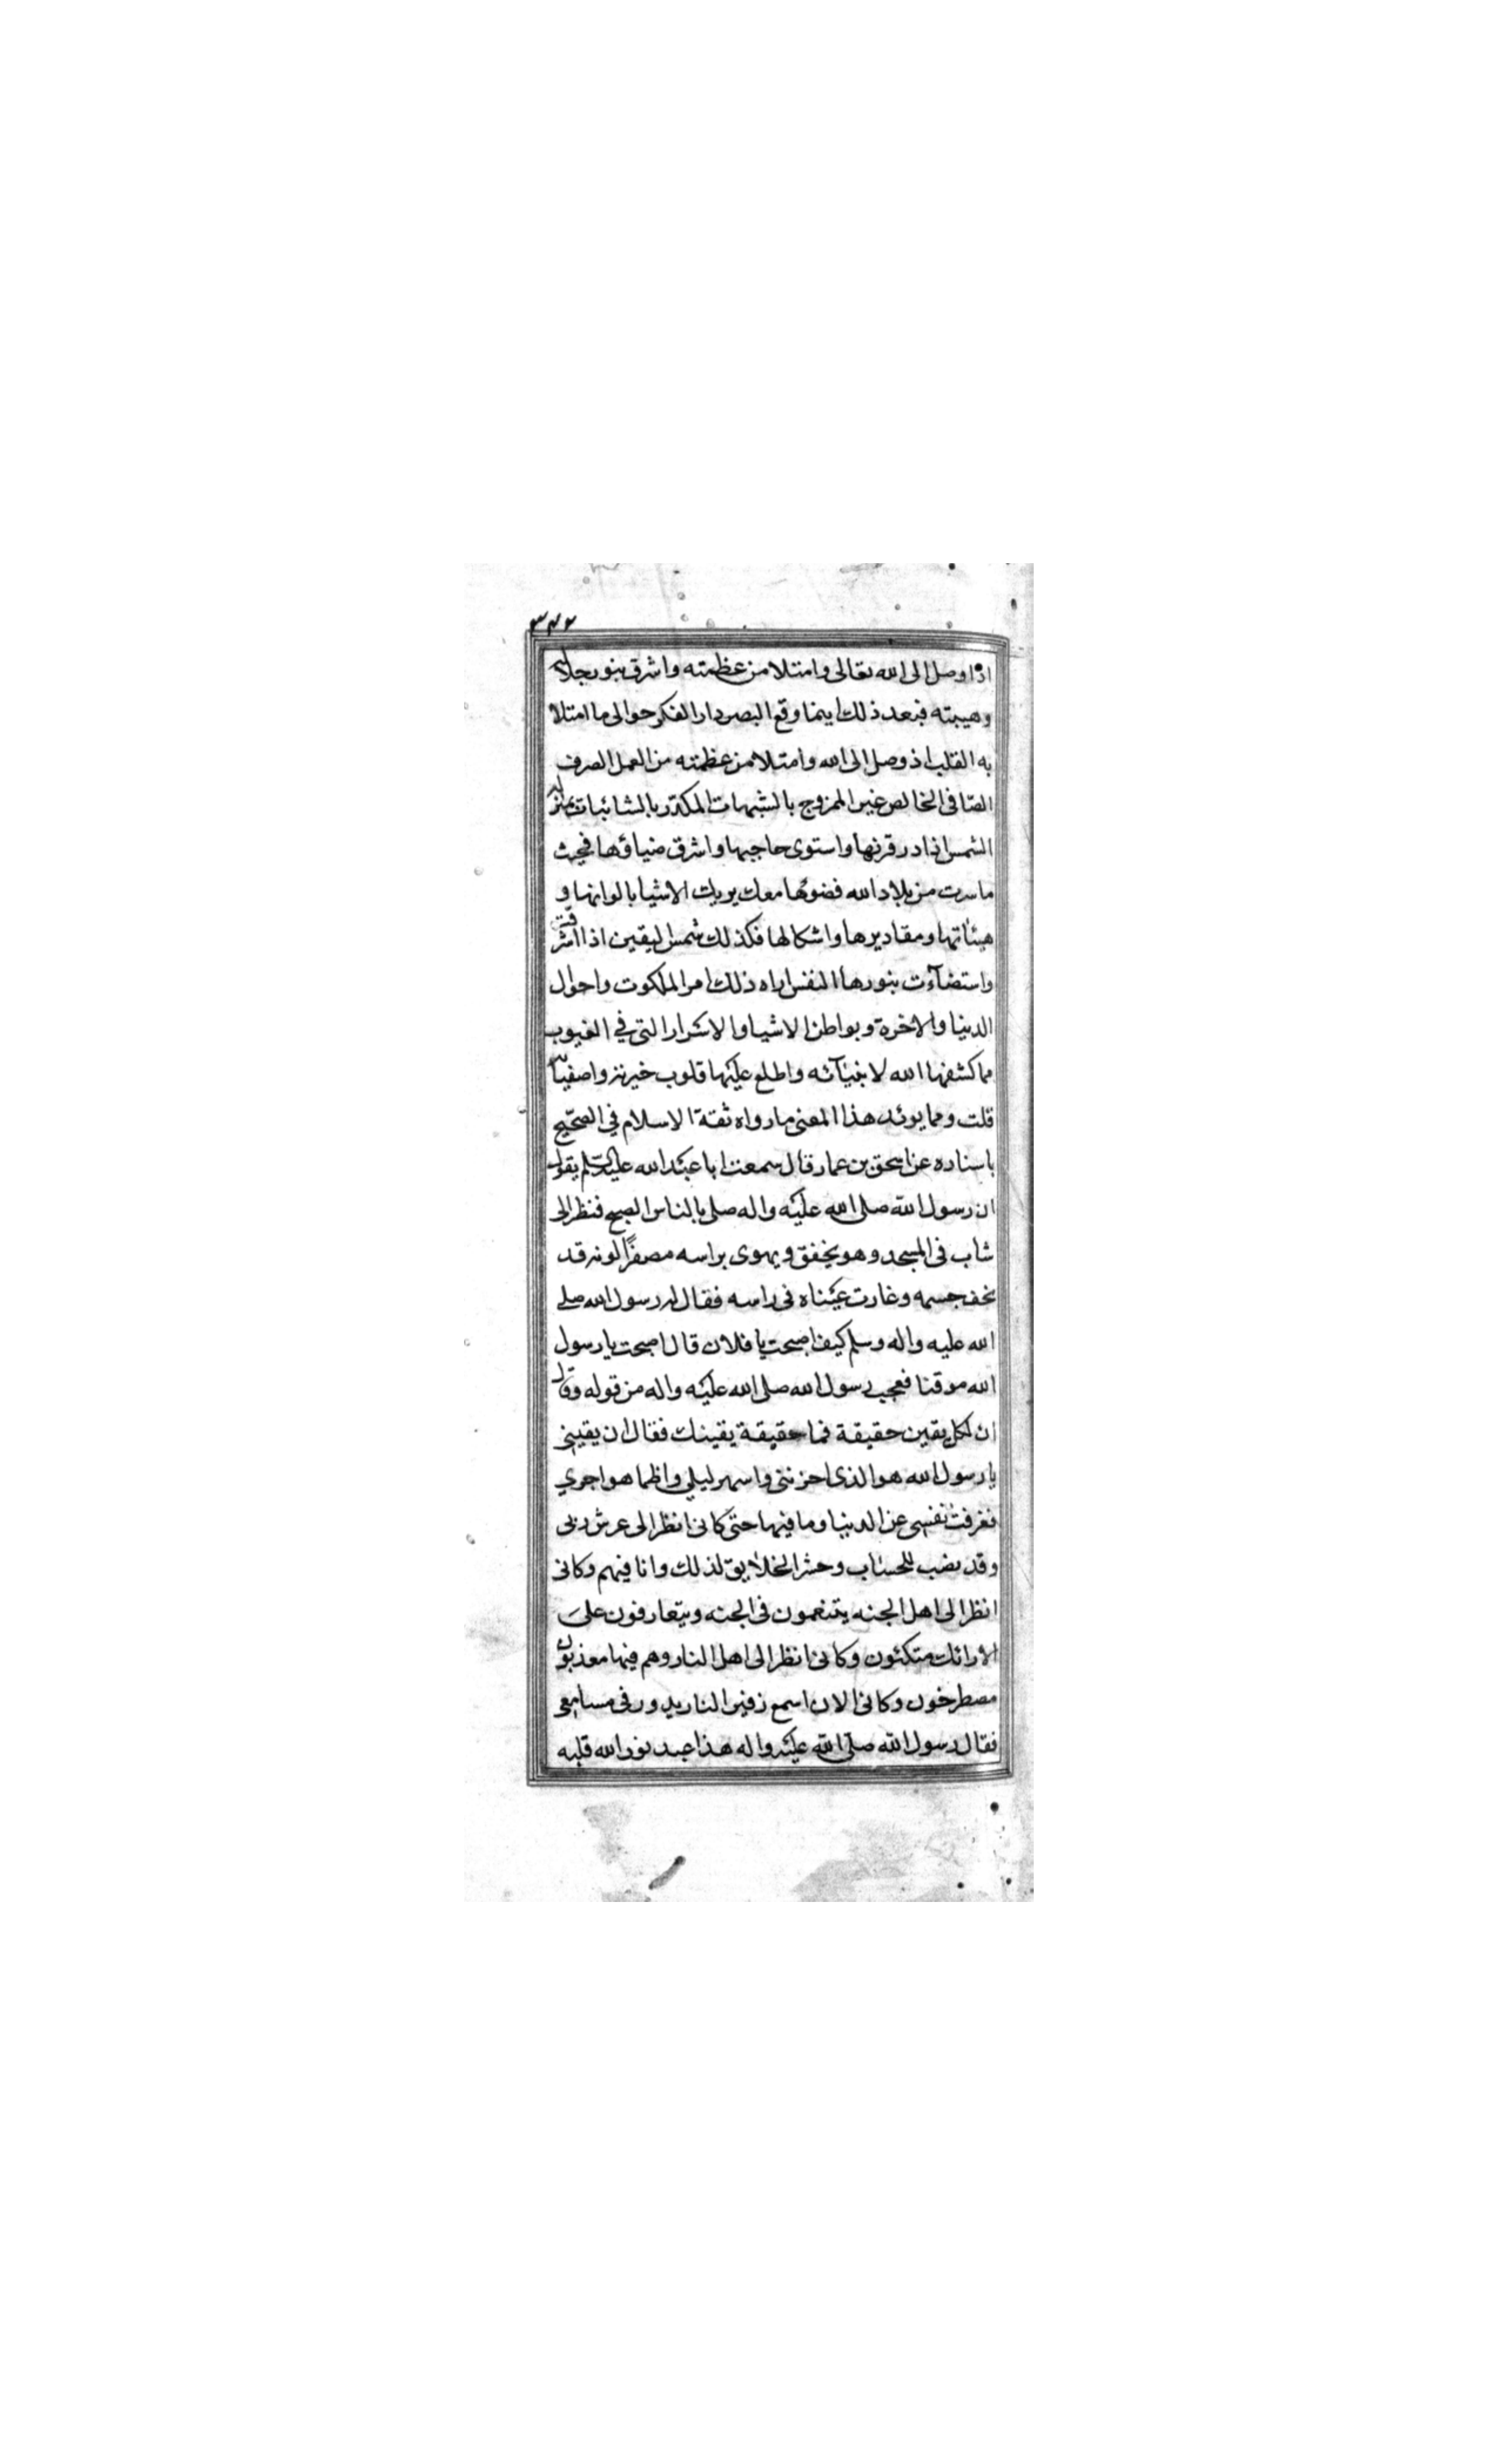 ٣٤٢
اذا وصل الى الله تعالى وامتلا من عظمته واشرق بنور جلاله
وهيبته فبعد ذلك اينما وقع البصر دار الفكر حوالى ما امتلا
به القلب اذ وصل الى الله وامتلا من عظمته من العمل الصرف
الصّافى الخالص غير الممزوج بالشبهات المكدّر بالشائبات بمنزله
الشمس اذا در قرنها واستوى حاجبها واشرق ضياؤها فحيث
ما سرت من بلاد الله فضوئها معك يريك الاشيا بالوانها و
هيئاتها ومقاديرها واشكالها فكذلك شمس ليقين اذا اشرقت
واستضآءت بنورها النفس اراه ذلك امر الملكوت واحوال
الدنيا والاخرة وبواطن الاشيا والاسرار التى فى الغيوب
مما كشفها الله لانبيآئه واطلع عليها قلوب خيرته واصفيائه
قلت ومما يوئد هذا المعنى ما رواه ثقة الاسلام فى الصّحيح
باسناده عن اسحق بن عمار قال سمعت ابا عبد الله عليه السلم يقول
ان رسول الله صلى الله عليه واله صلى بالناس الصبح فنظر الى
شاب فى المسجد وهو يخفق ويهوى براسه مصفرًا لونه قد
نحف جسمه وغارت عيناه فى راسه فقال له رسول الله صلى
الله عليه واله وسلم كيف اصبحت يا فلان قال اصبحت يا رسول
الله موقنا فعجب رسول الله صلى الله عليه واله من قوله وقال
ان لكل يقين حقيقة فما حقيقة يقينك فقال ان يقينى
يا رسول الله هو الذى احزننى واسهر ليلي واظما هواجري
فعزفت نفسى عن الدنيا وما فيها حتى كانى انظر الى عرش ربى
وقد نصب للحساب وحشر الخلايق لذلك وانا فيهم وكانى
انظر الى اهل الجنه يتنعمون فى الجنه ويتعارفون على
الارائك متكئون وكانى انظر الى اهل النار وهم فيها معذبون
مصطرخون وكانى الان اسمع زفير النار يدور فى مسامعى
فقال رسول الله صلى الله عليه واله هذا عبد نور الله قلبه